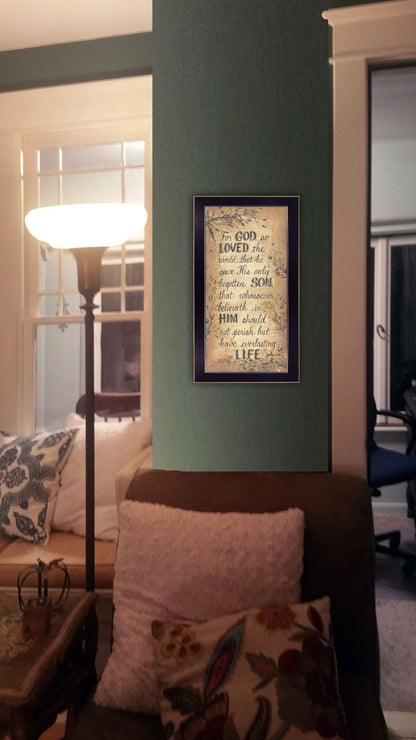 For GOD so
LOVED the
world, that he
gave His only
begotten SON,
that whosoever
believeth in
HIM should
not perish but
have everlasting
LIFE